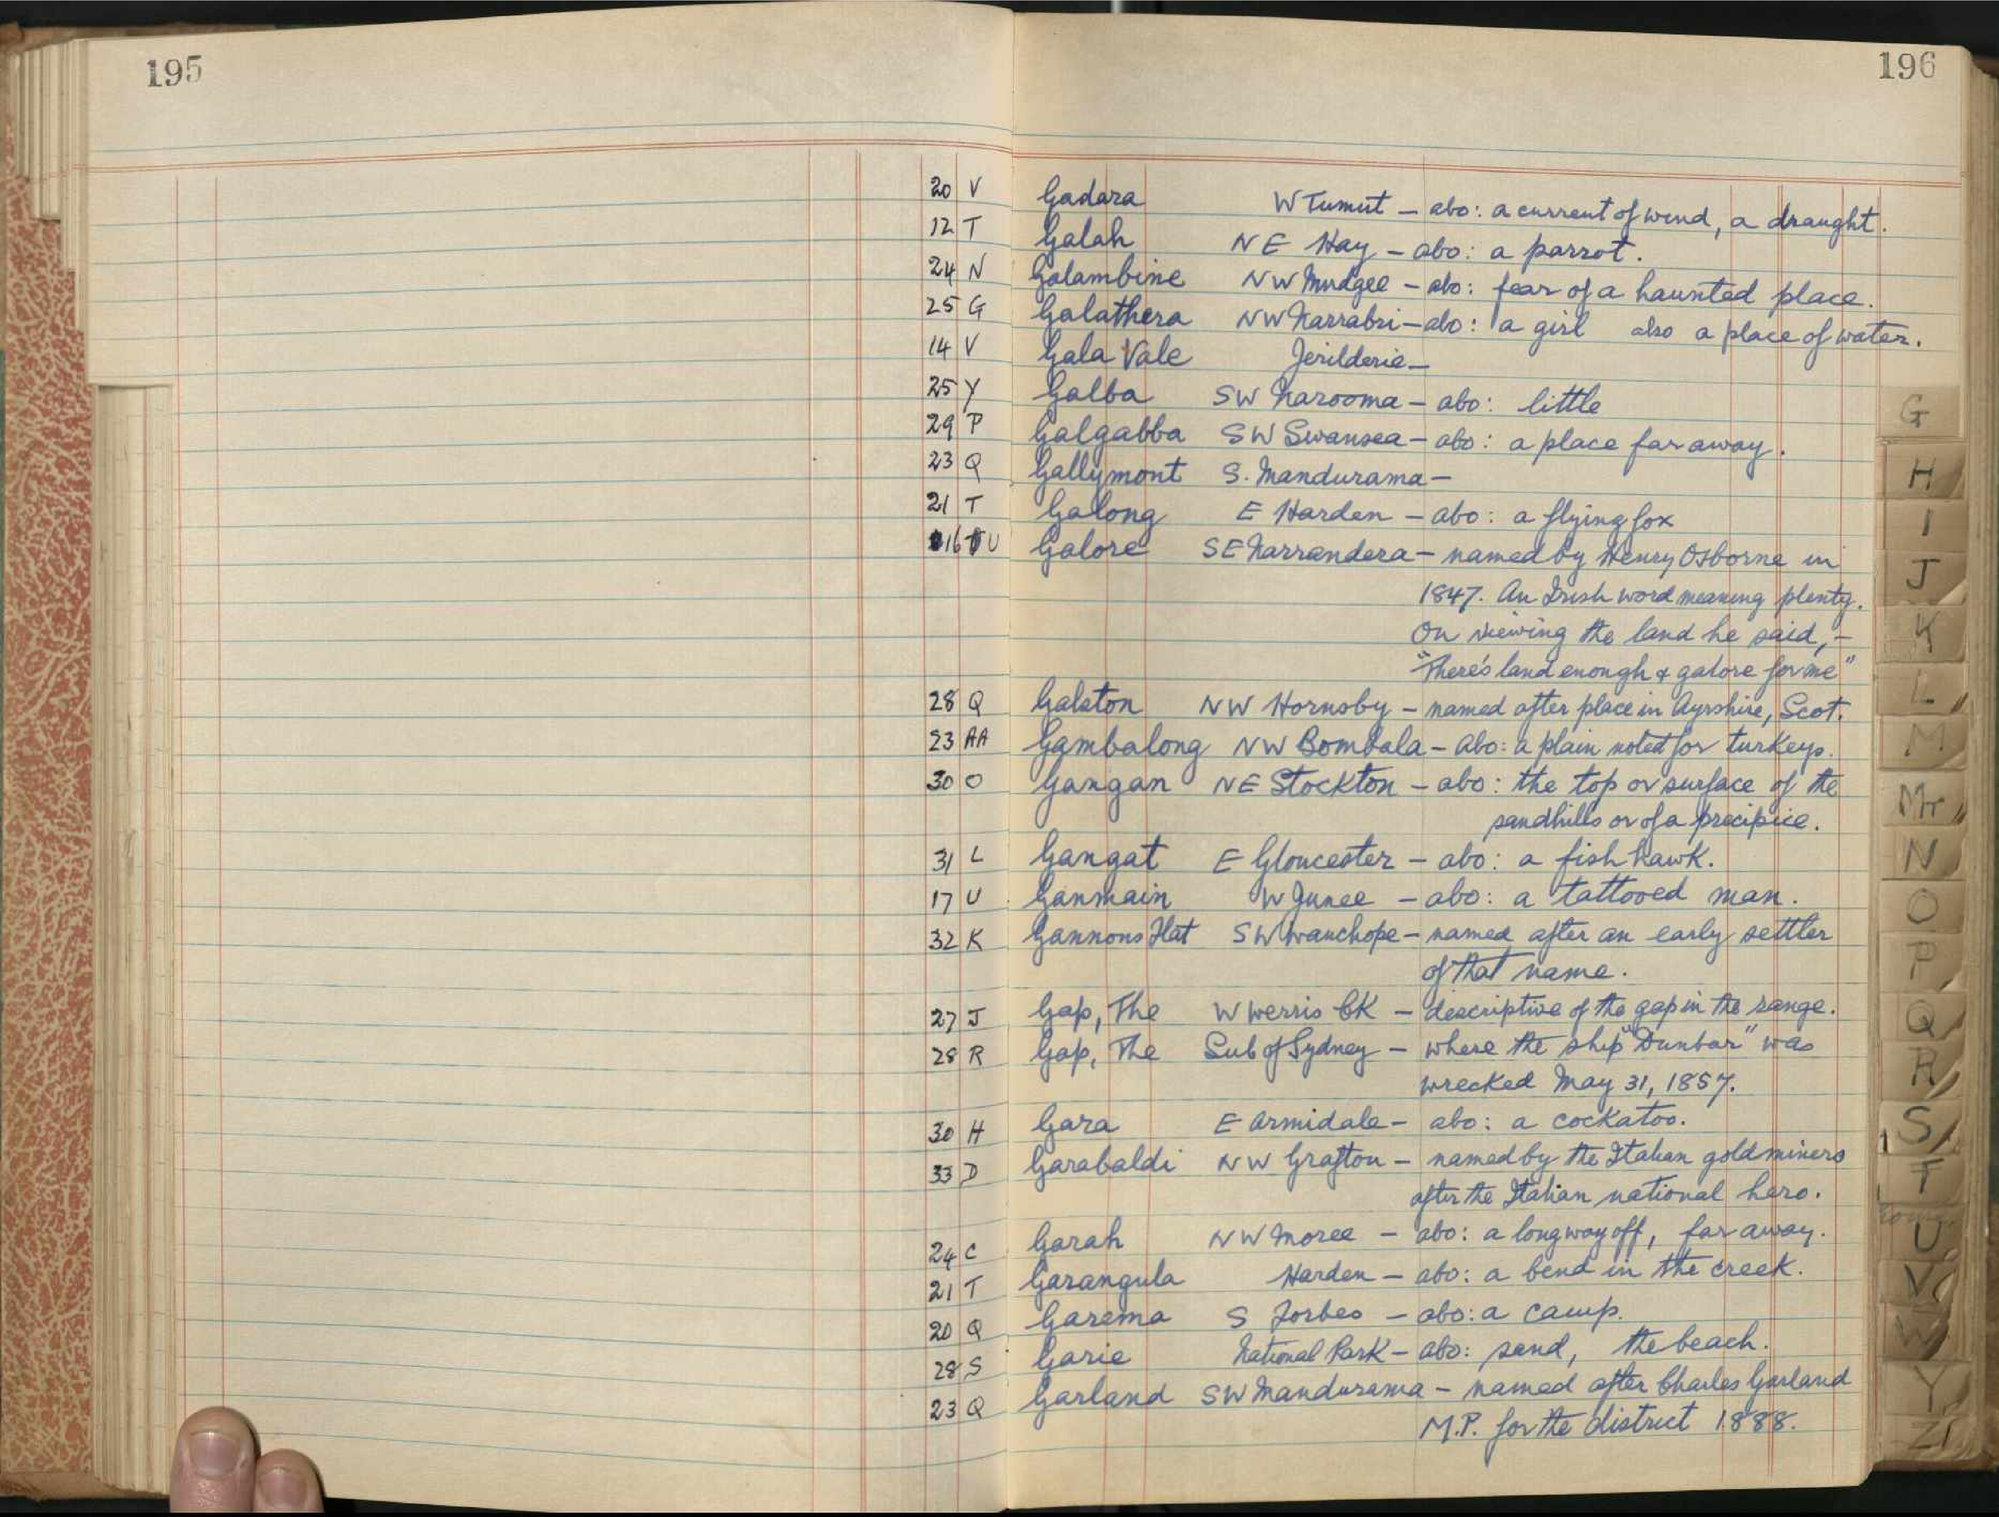 195
196
20 V Gadara W Tumut – abo: a current of wind, a draught.
12 T Galah NE Hay – abo: a parrot.
24 N Galambine NW Mudgee – abo: fear of a haunted place.
25 G Galathera NW Narrabri – abo: a girl also a place of water.
14 V Gala Vale Jerilderie –
25 Y Galba SW Narooma – abo: little
29 P Galgabba SW Swansea – abo: a place far away.
23 Q Gallymont S. Mandurama –
21 T Galong E Harden – abo: a flying fox
16 U Galore SE Narrandera – named by Henry Osborne in
1847. An Irish word meaning plenty.
On viewing the land he said, –
"There's land enough & galore for me"
28 Q Galston NW Hornsby – named after place in Ayrshire, Scot.
23 AA Gambalong NW Bombala – Abo: a plain noted for turkeys.
30 O Gangan NE Stockton – abo: the top or surface of the
sandhills or of a precipice.
31 L Gangat E Gloucester – abo: a fish hawk.
17 U Ganmain W Junee – abo: a tattooed man.
32 K Gannons Flat SW Wauchope – named after an early settler
of that name.
27 J Gap, The W Werris CK – descriptive of the gap in the range.
28 R Gap, The Sub of Sydney – where the ship "Dunbar" was
wrecked May 31, 1857.
30 H Gara E Armidale – abo: a cockatoo.
33 D Garabaldi NW Grafton – named by the Italian goldminers
after the Italian national hero.
24 C Garah NW Moree – abo: a long way off, far away.
21 T Garangula Harden – abo: a bend in the creek.
20 Q Garema S Forbes – abo: a camp.
28 S Garie National Park – abo: sand, the beach.
23 Q Garland SW Mandurama – named after Charles Garland
M.P. for the district 1888.
G
H
I
J
K
L
M
Mc
N
O
P
Q
R
S
T
U
V
W
Y
Z